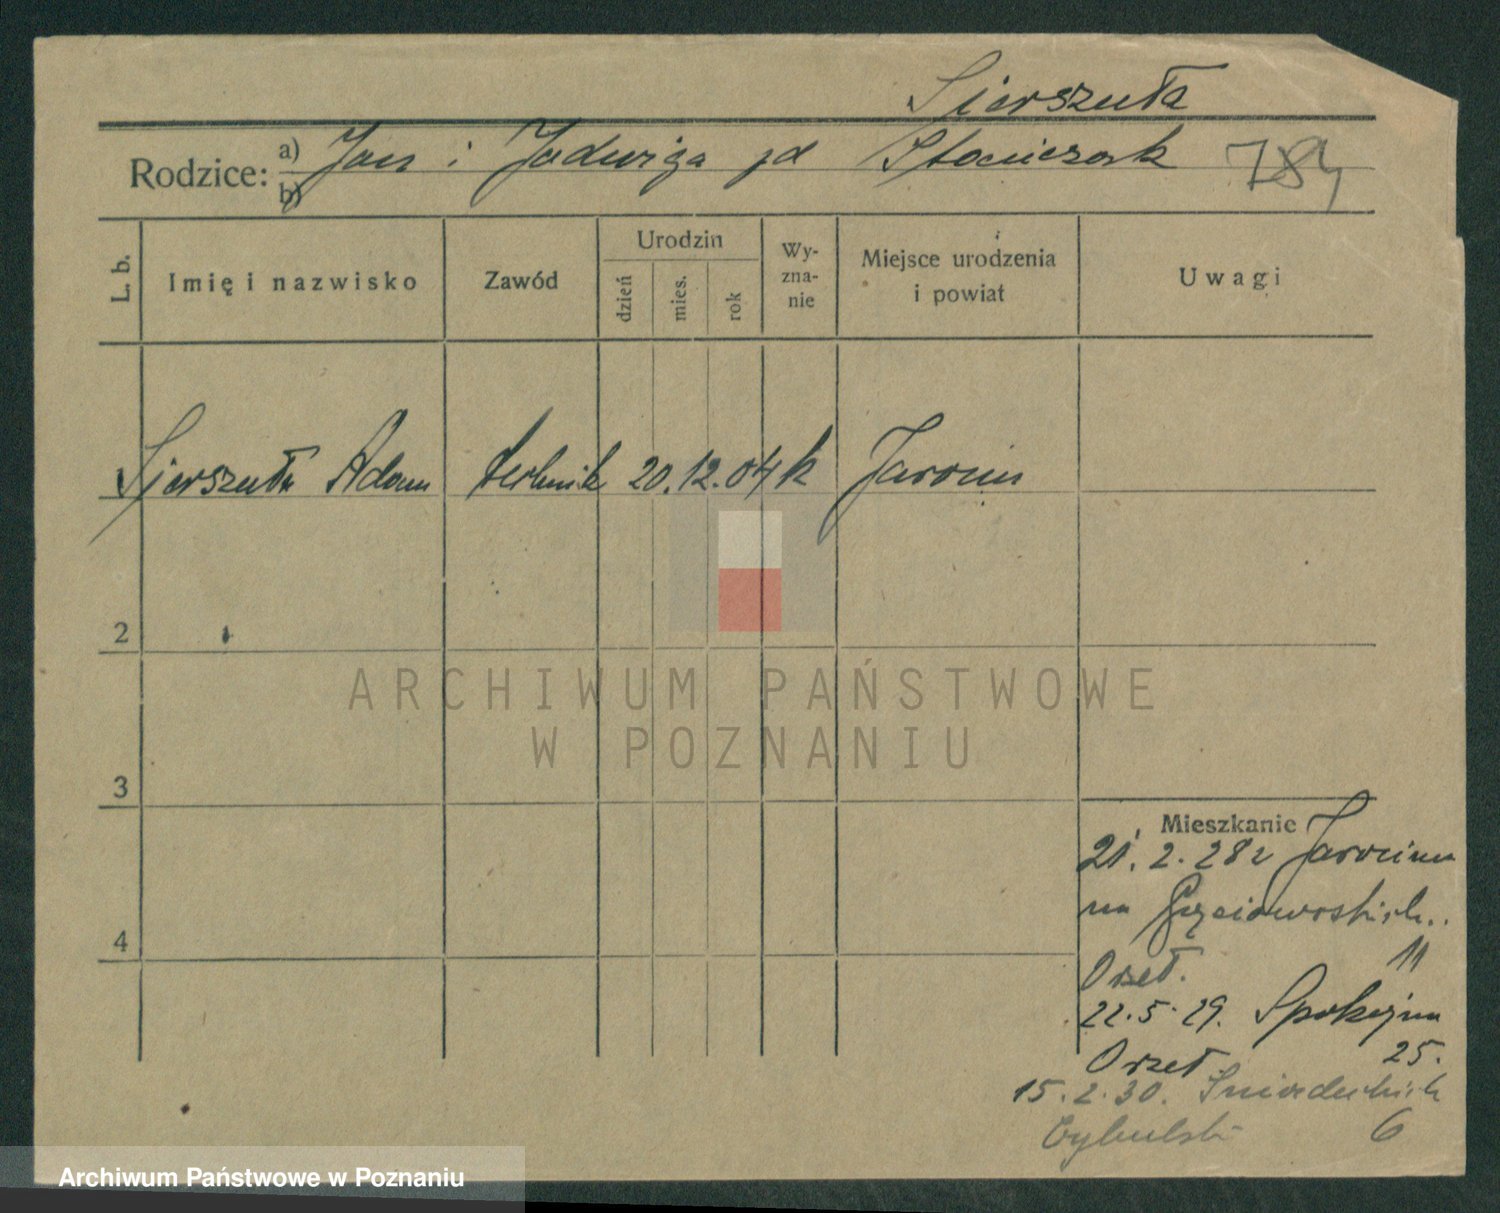 Sierszuła
Rodzice: a) Jan i Jadwiga zd Stanieczak 784
b)
L. b. Imię i nazwisko Zawód Urodzin dzień mies. rok Wy-zna-nie Miejsce urodzenia i powiat Uwagi
Sierszuła Adam technik 20.12.04 k Jarocin
2
ARCHIWUM PAŃSTWOWE
W POZNANIU
3
Mieszkanie
21.2.28 z Jarocina
na
Orzeł. 11
4
22.5.29. Spokojna
Orzeł 25.
15.2.30. Śniadeckich
Cybulski 6
Archiwum Państwowe w Poznaniu